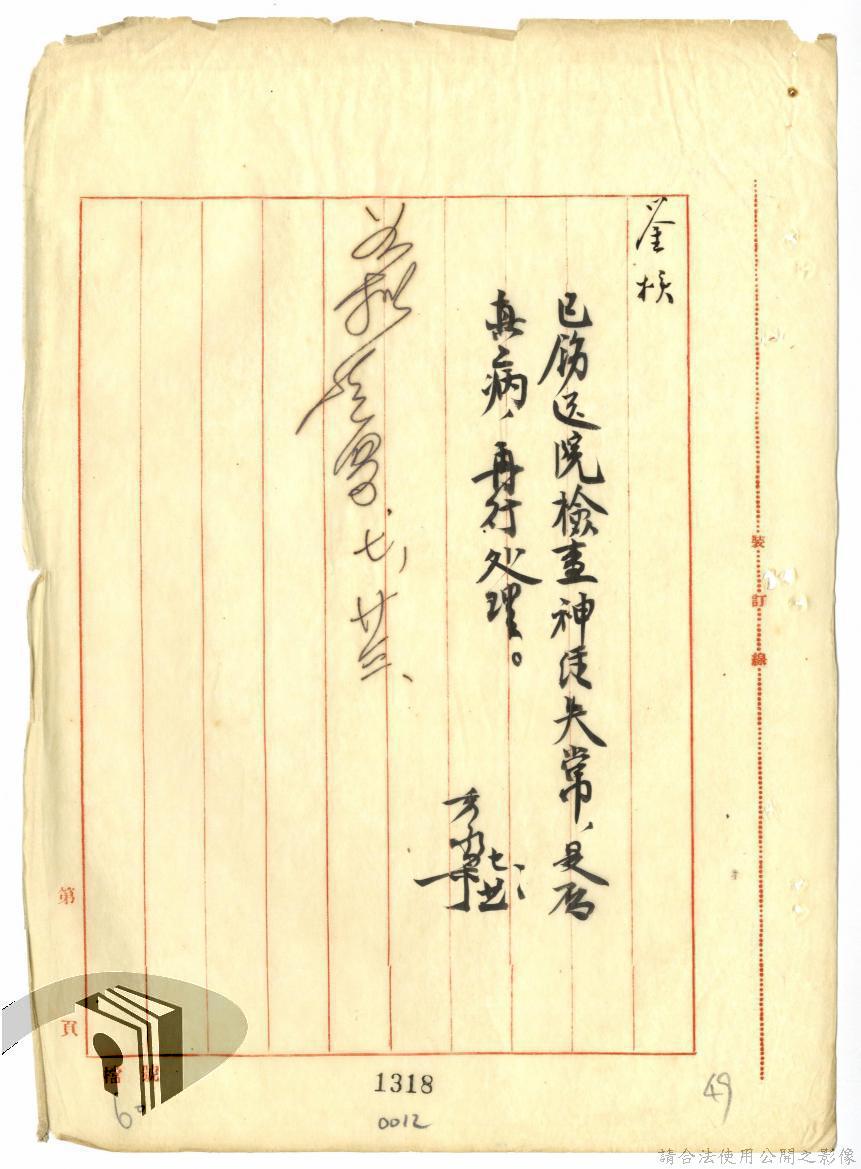 鉴核
已飭送院檢查神經失常,是否
真病,再行处理。
七、廿、
如擬
七、廿三、
裝訂線
第 頁
檔號
1318
0012
60
49
請合法使用公開之影像